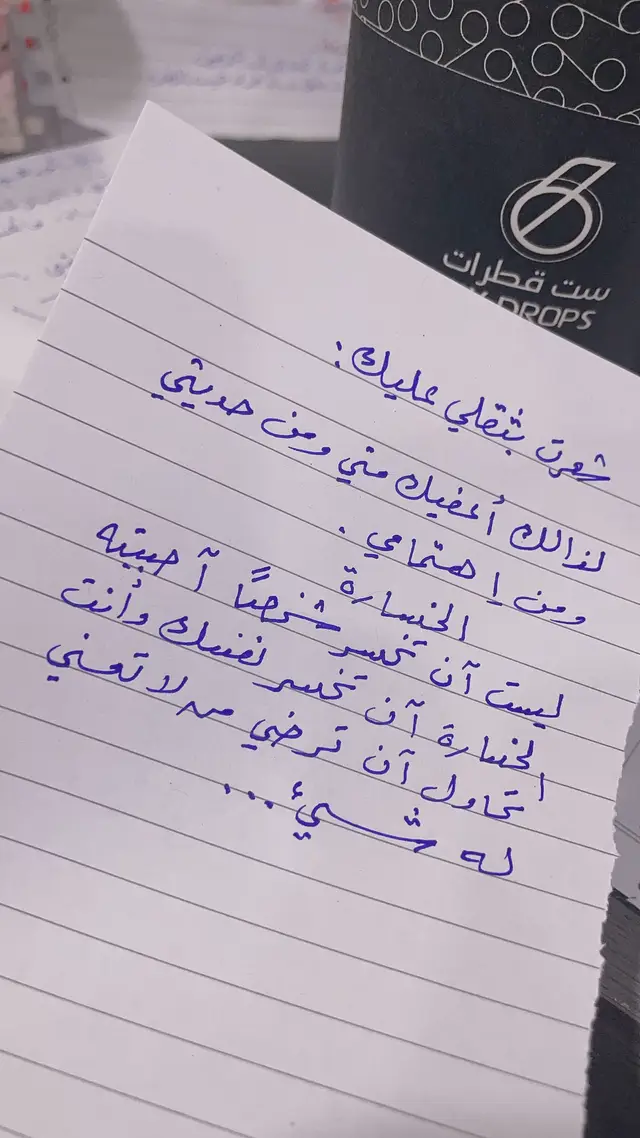 ست قطرات
DROPS
شعرت بثقلي عليك:
لذالك أعفيك مني ومن حديثي
ومن إهتمامي .
الخسارة
ليست آن تخسر شخصًا آحببته
الخسارة آن تخسر نفسك وأنت
تحاول آن ترضي من لا تعني
له شيئ...